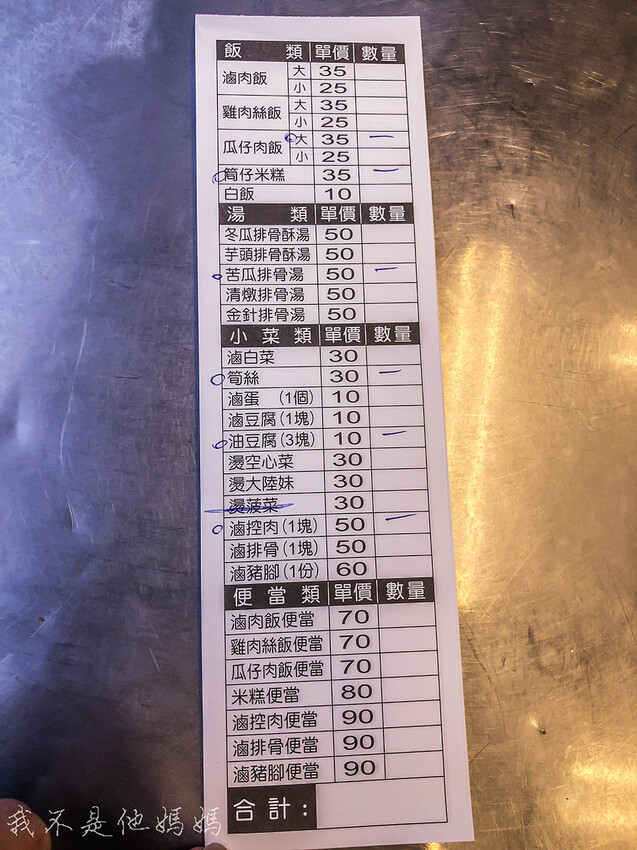 飯類 單價 數量
滷肉飯 大 35
小 25
雞肉絲飯 大 35
小 25
瓜仔肉飯 大 35 一
小 25
筒仔米糕 35 一
白飯 10
湯類 單價 數量
冬瓜排骨酥湯 50
芋頭排骨酥湯 50
苦瓜排骨湯 50 一
清燉排骨湯 50
金針排骨湯 50
小菜類 單價 數量
滷白菜 30
筍絲 30 一
滷蛋 (1個) 10
滷豆腐(1塊) 10
油豆腐(3塊) 10 一
燙空心菜 30
燙大陸妹 30
燙菠菜 30
滷控肉(1塊) 50 一
滷排骨(1塊) 50
滷豬腳(1份) 60
便當類 單價 數量
滷肉飯便當 70
雞肉絲飯便當 70
瓜仔肉飯便當 70
米糕便當 80
滷控肉便當 90
滷排骨便當 90
滷豬腳便當 90
合計:
我不是他媽媽